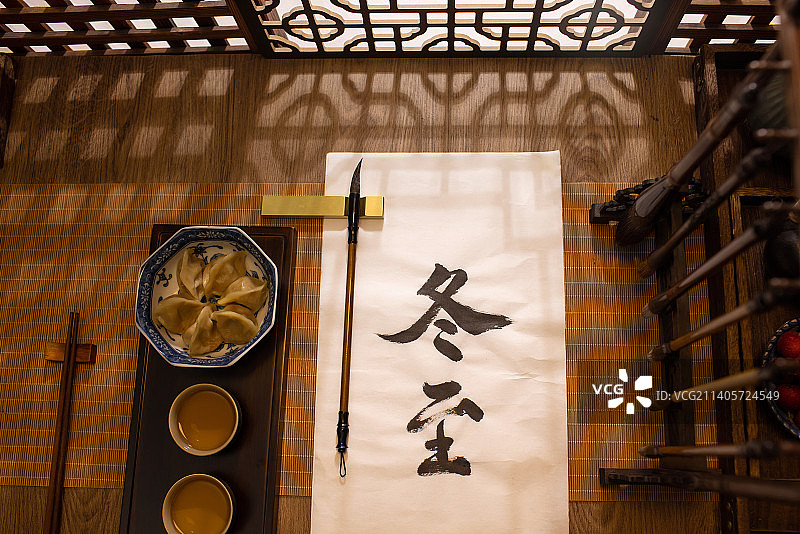 冬
至
VCG VCG211405724549